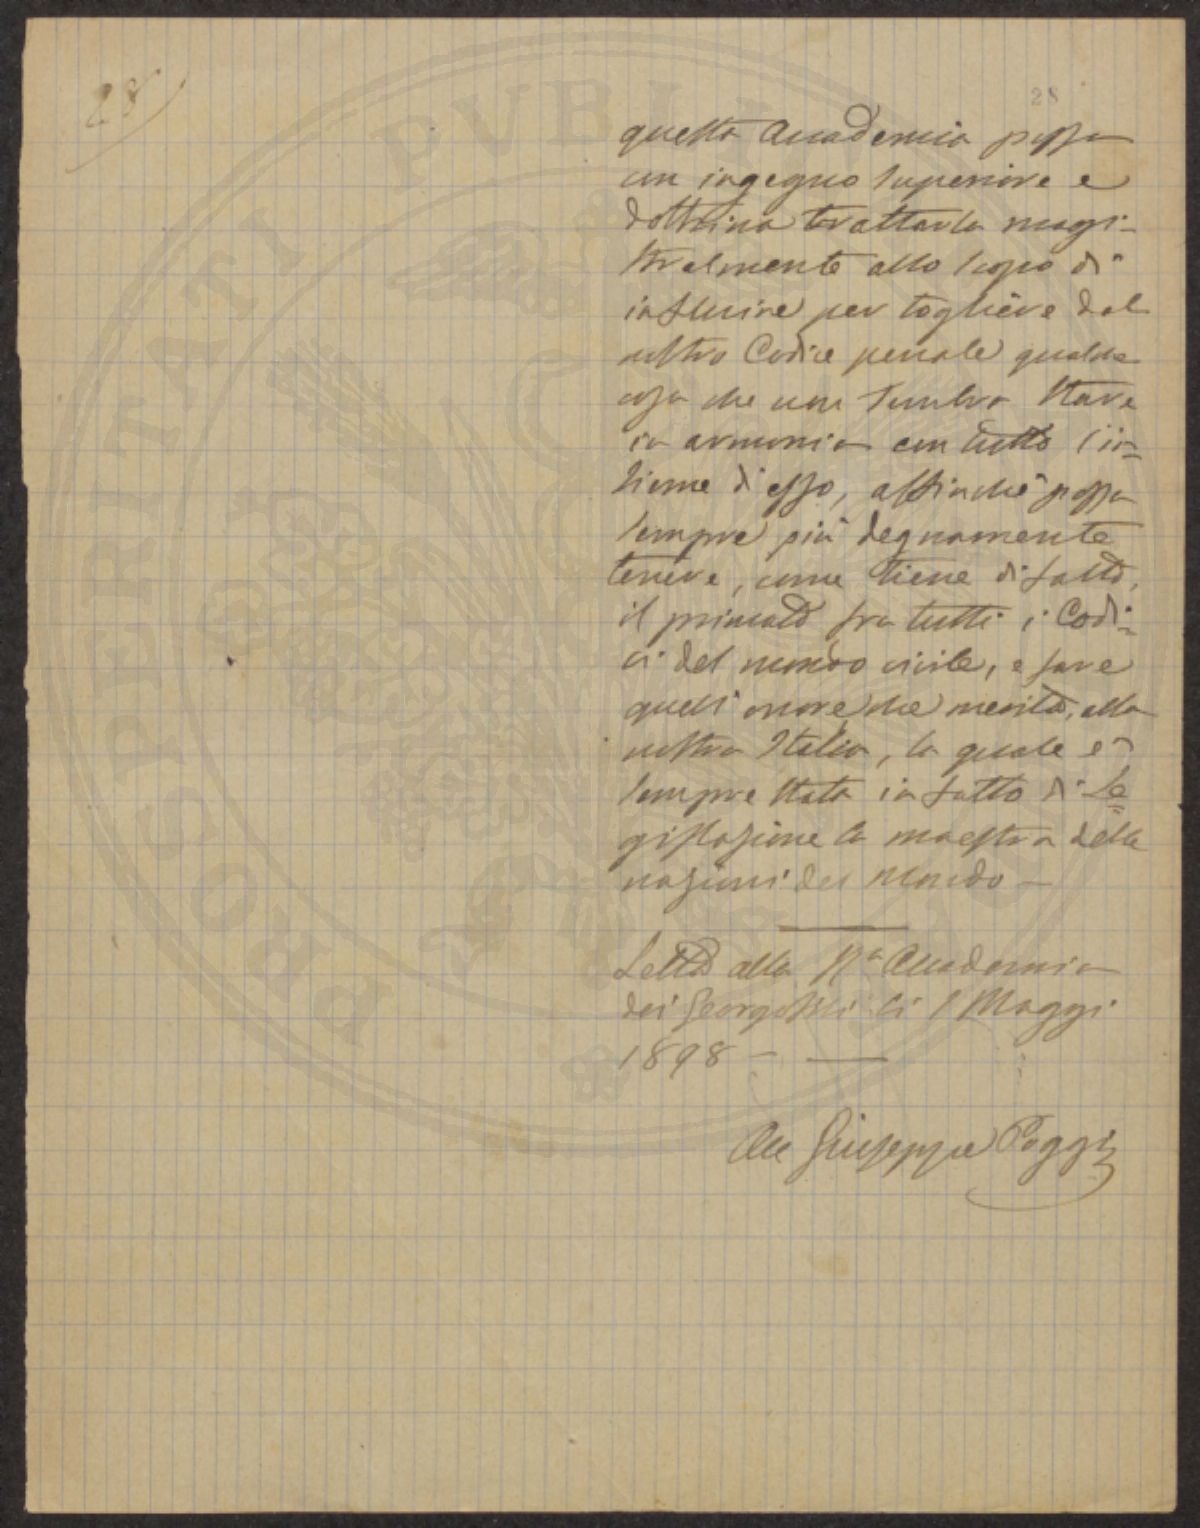 28
28
questa Accademia possa
con ingegno superiore e
dottrina trattarla magi-
stralmente allo scopo di
influire per togliere dal
nostro Codice penale qualche
cosa che non sembra stare
in armonia con tutto l'in=
sieme d'esso, affinchè possa
sempre più degnamente
tenere, come tiene di fatto,
il primato fra tutti i Codi=
ci del mondo civile, e fare
quell'onore che merita, alla
nostra Italia, la quale è
sempre stata in fatto di Le=
gislazione la maestra delle
nazioni del Mondo —
Letto alla R.a Accademia
dei Georgofili li 1 Maggi
1898 —
Giuseppe Poggi
PROSPERITATI PUBLI